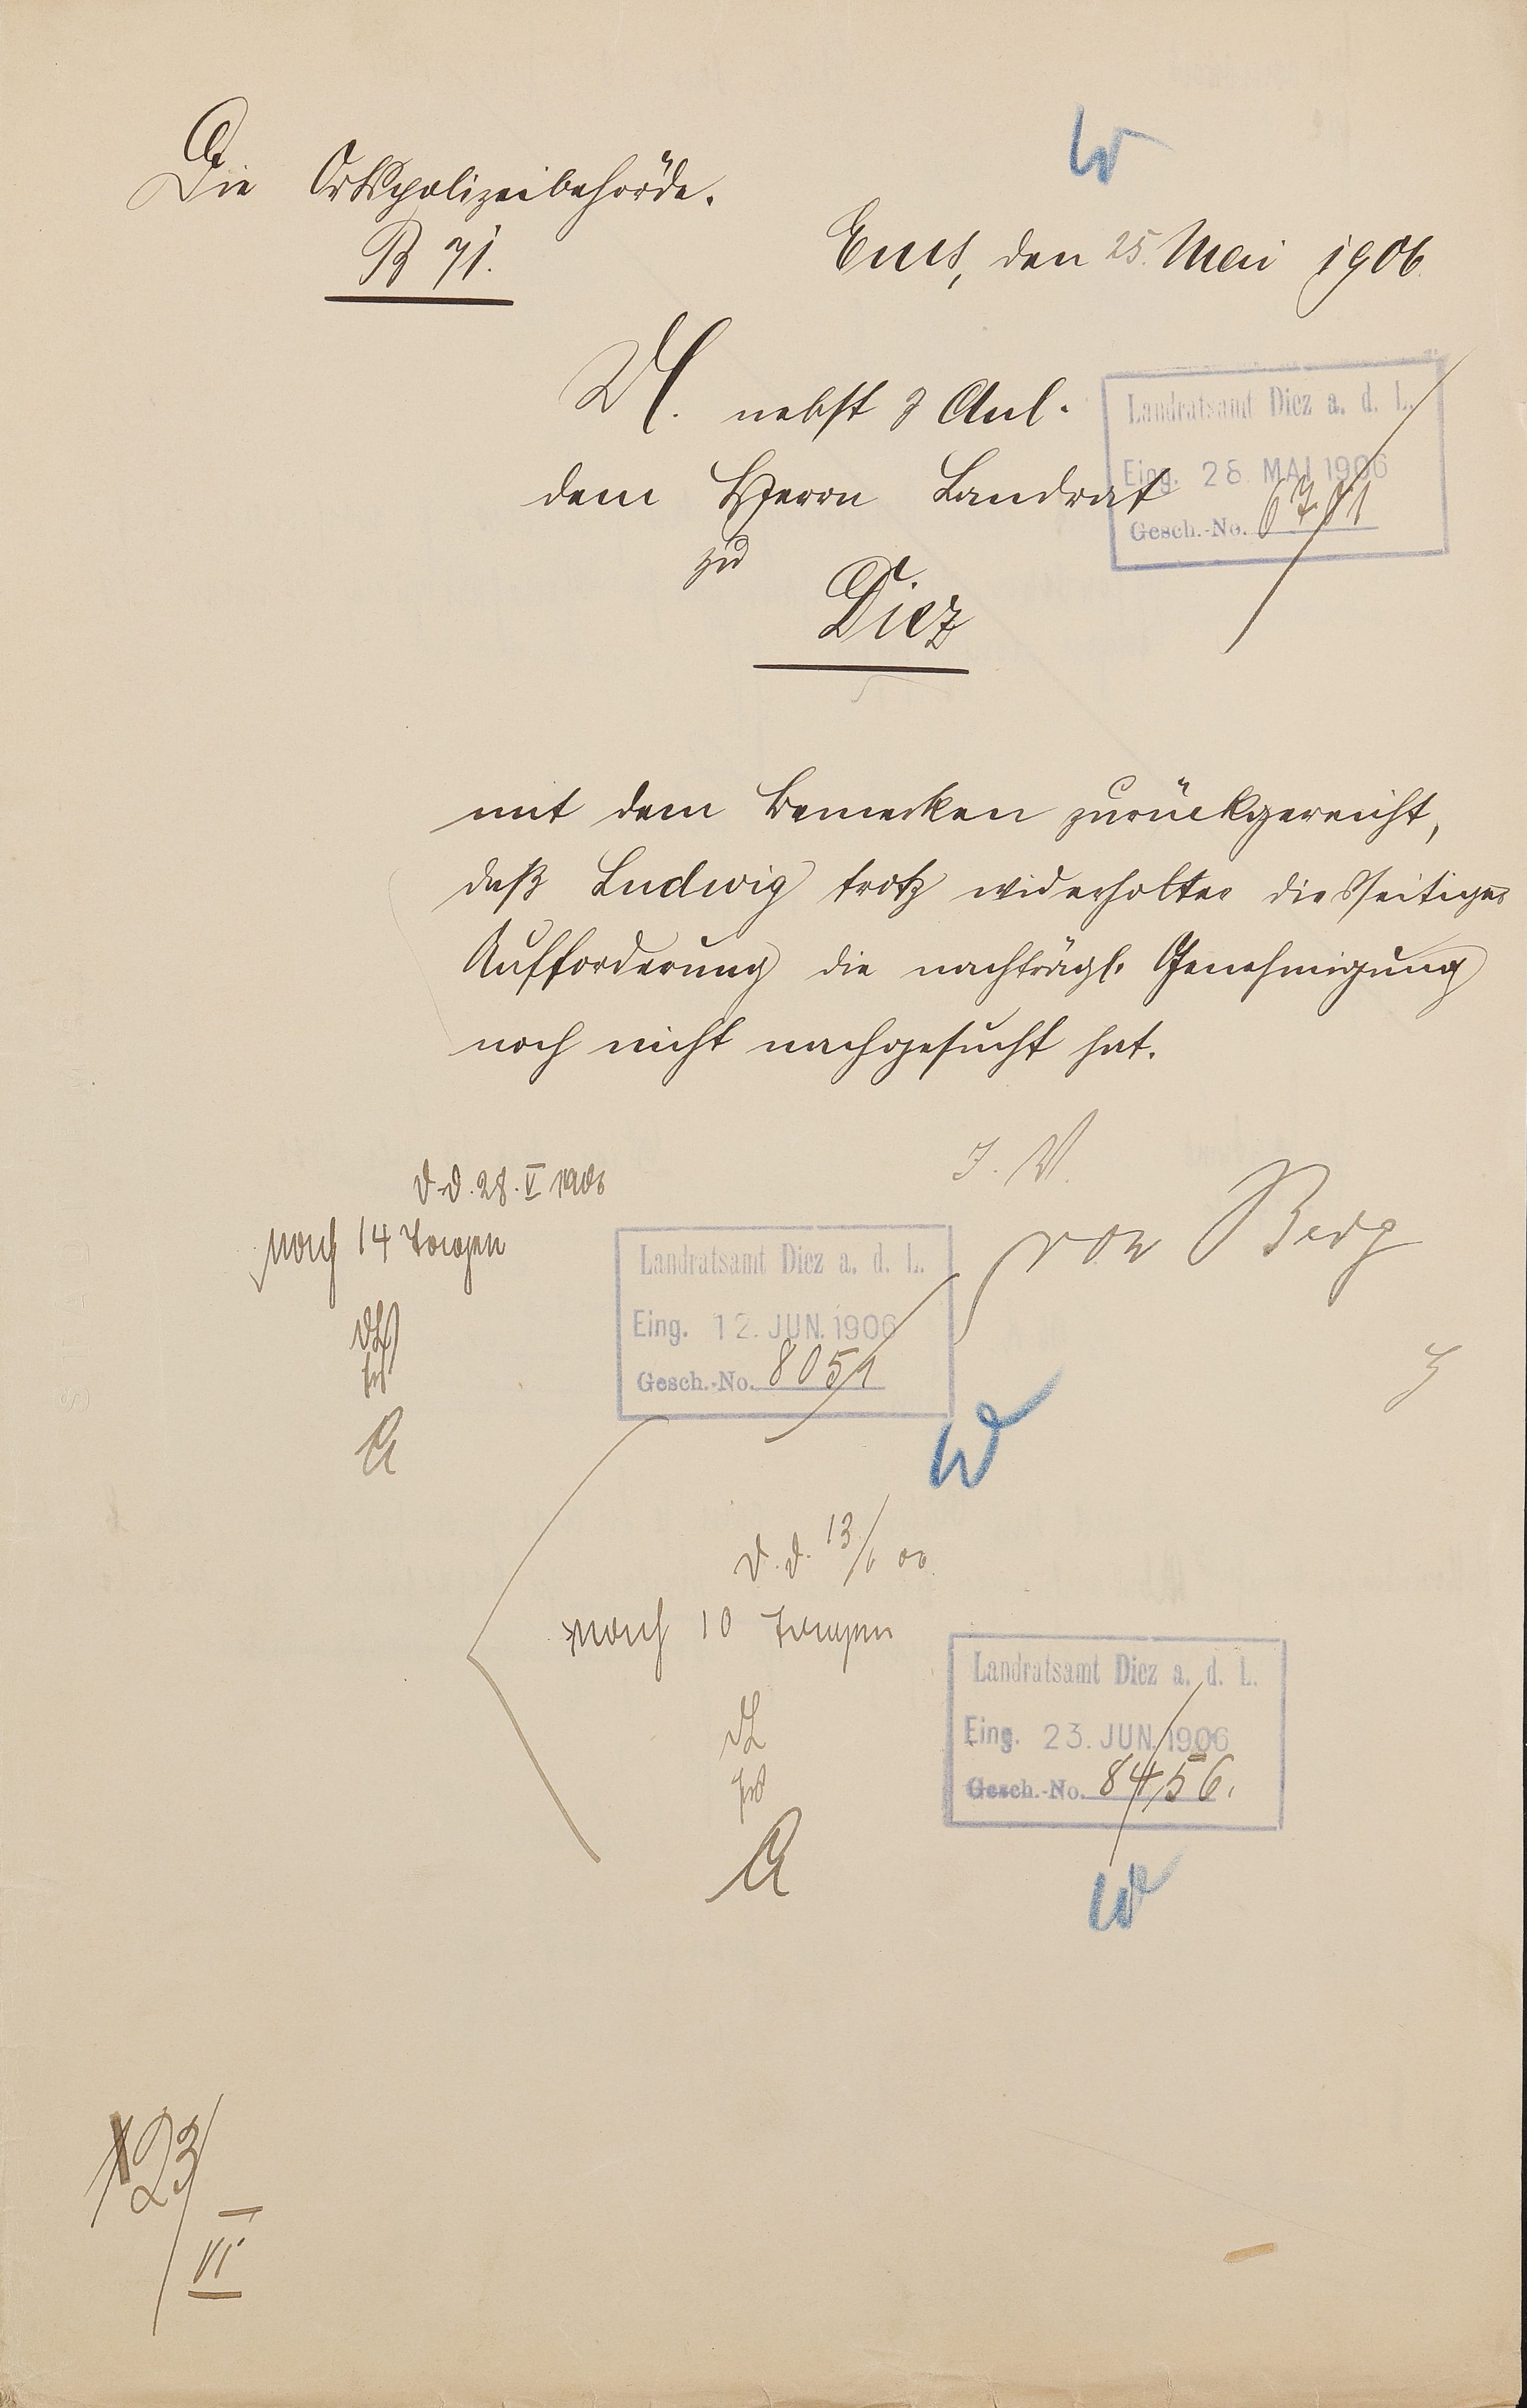 W
Die Ortspolizeibehörde.
B 71.
Ems, den 25. Mai 1906.
U. nebst Anl.
dem Herrn Landrat
zu
Diez
Landratsamt Diez a. d. L.
Eing. 28. MAI 1906
Gesch.-No.
mit dem Bemerken zurückgereicht,
daß Ludwig trotz widerholter diesseitiger
Aufforderung die nachträgl. Genehmigung
noch nicht nachgesucht hat.
J. V.
von Berg
D. d. 28. V 1906
nach 14 Tagen
DL
A
Landratsamt Diez a. d. L.
Eing. 12. JUN. 1906
Gesch.-No. 8051
W
D. d. 13/6 06.
nach 10 Tagen
DL
A
Landratsamt Diez a. d. L.
Eing. 23. JUN. 1906
Gesch.-No. 8456.
W
23/
VI